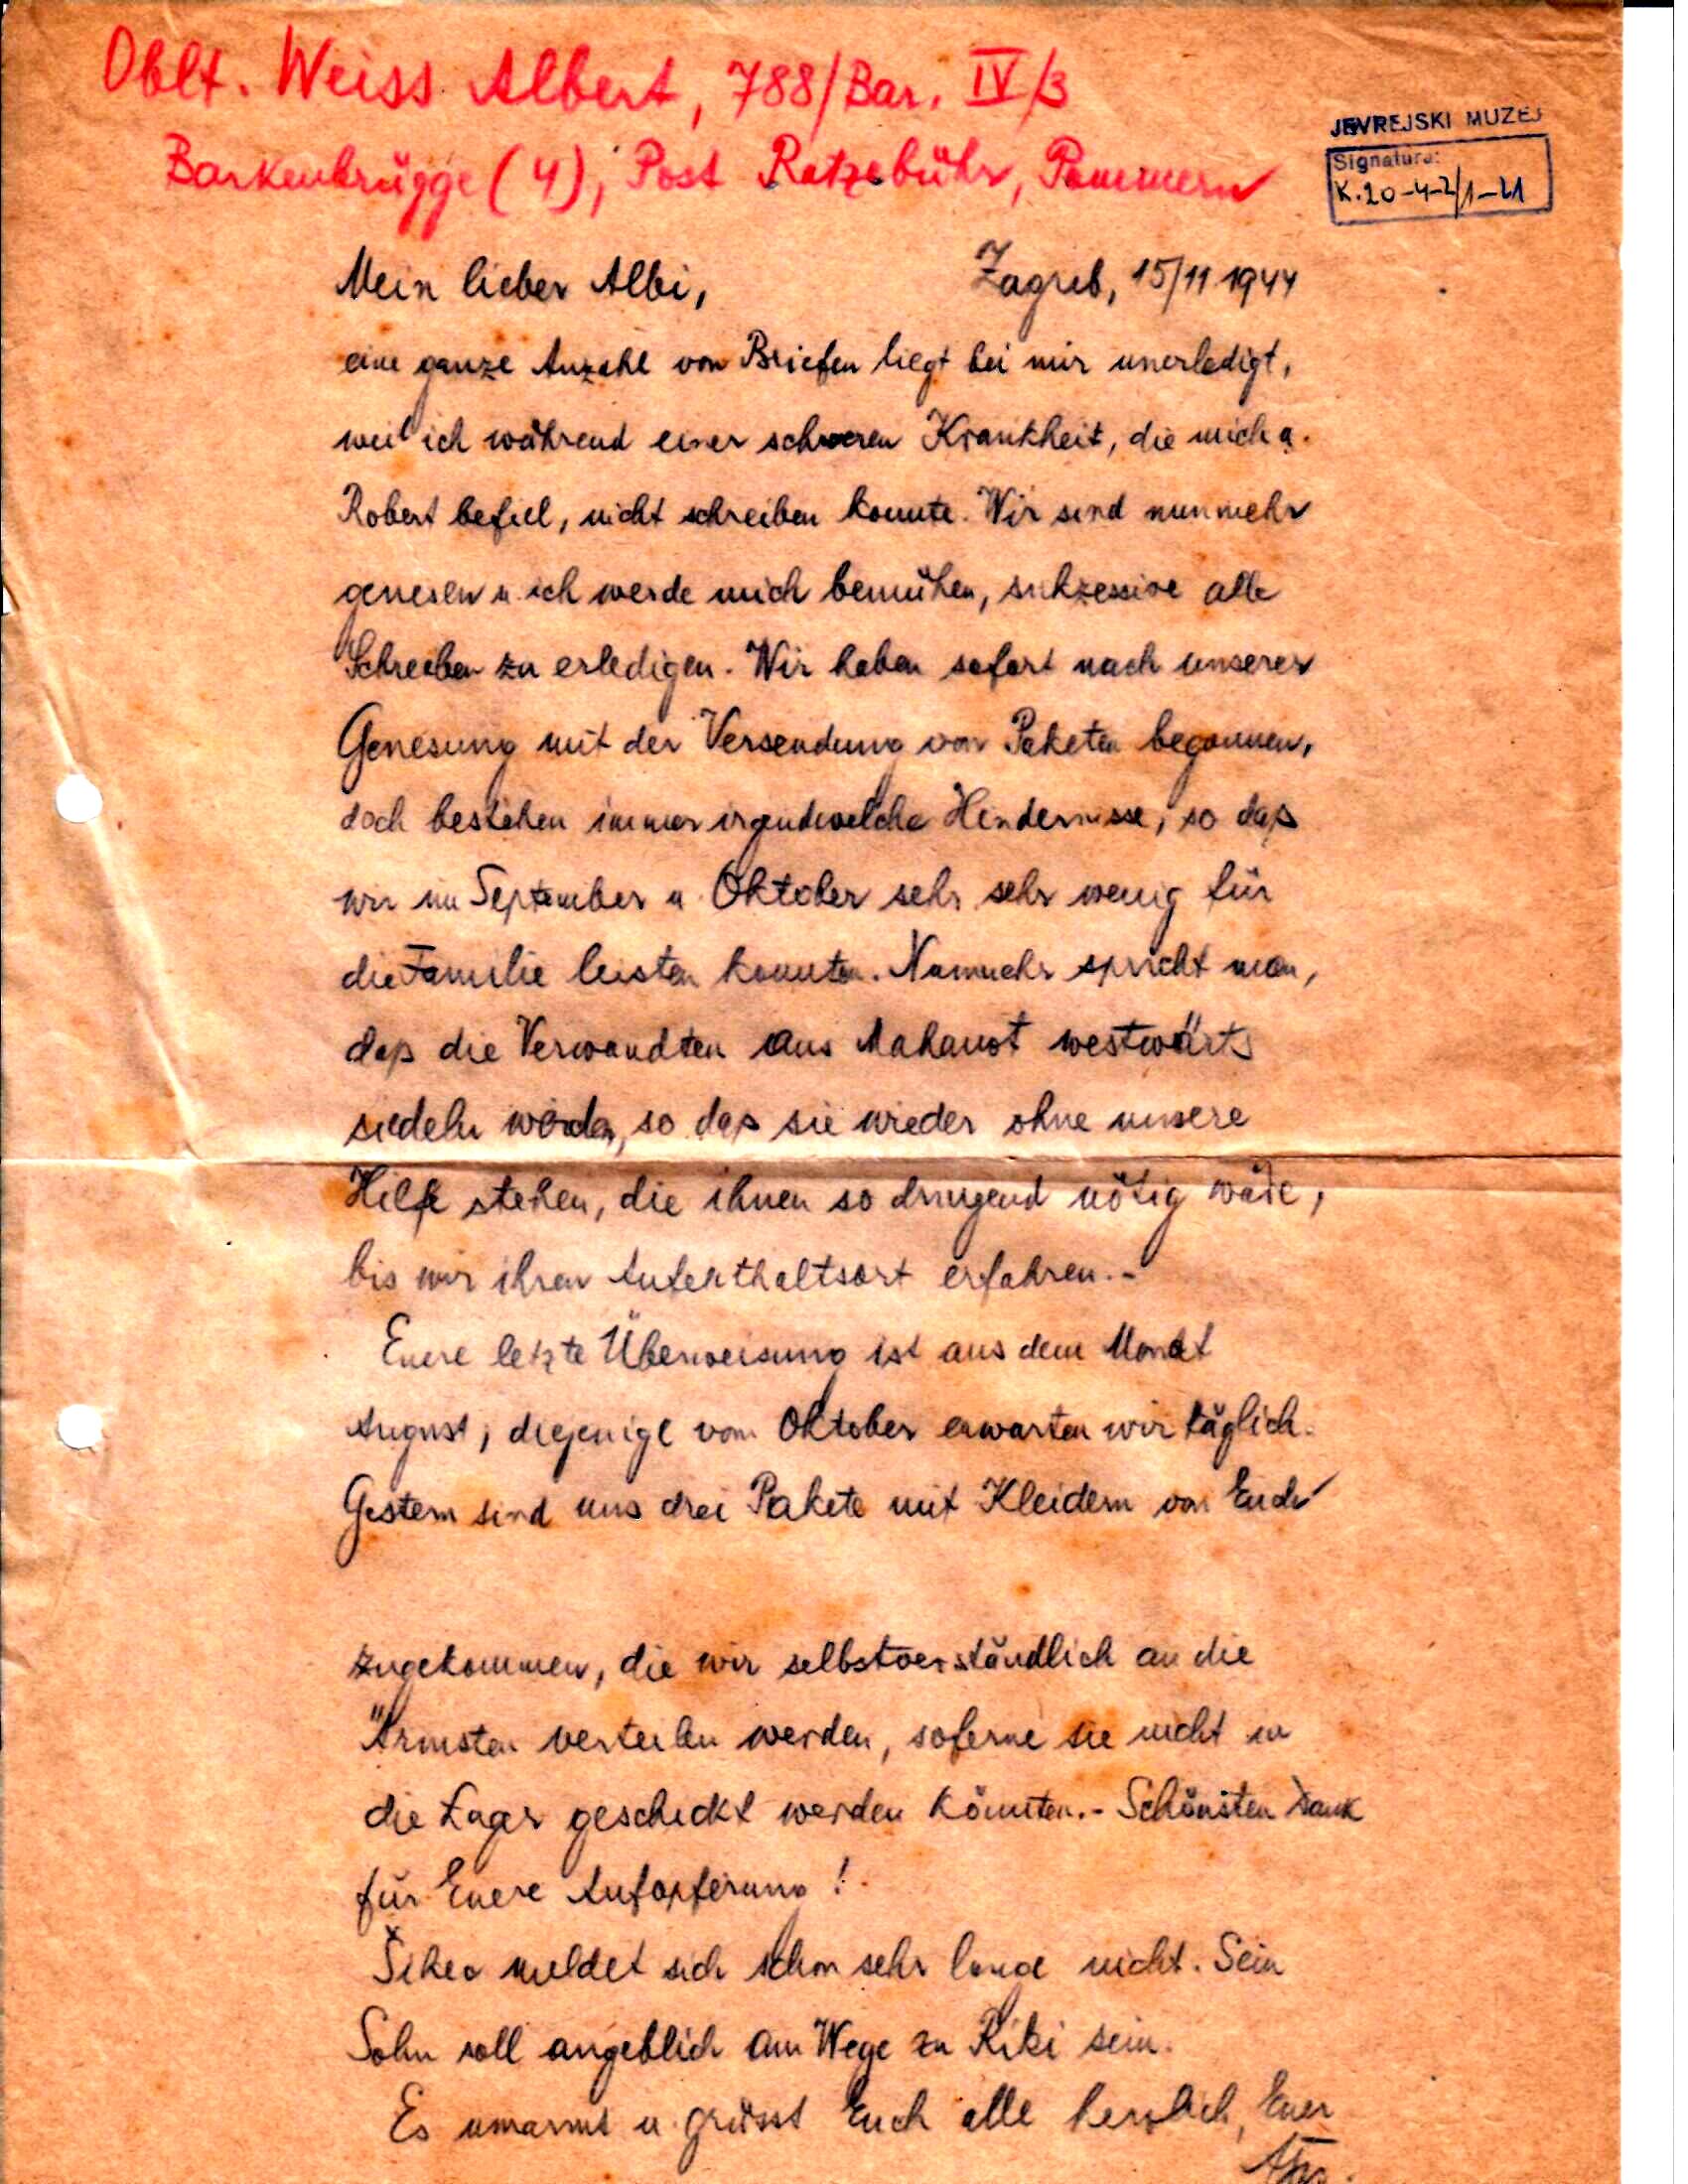 Oblt. Weiss Albert, 788/Bar. IV/3
Barkenbrügge (4), Post Ratzebühr, Pommern
JEVREJSKI MUZEJ
Signatura:
K.20-4-2/1-21
Mein lieber Albi, Zagreb, 15/11 1944
eine ganze Anzahl von Briefen liegt bei mir unerledigt,
weil ich während einer schweren Krankheit, die mich u.
Robert befiel, nicht schreiben konnte. Wir sind nunmehr
genesen u. ich werde mich bemühen, sukzessive alle
Schreiben zu erledigen. Wir haben sofort nach unserer
Genesung mit der Versendung von Paketen begonnen,
doch bestehen immer irgendwelche Hindernisse, so daß
wir im September u. Oktober sehr sehr wenig für
die Familie leisten konnten. Nunmehr spricht man,
daß die Verwandten aus Mahanot westwärts
siedeln werden, so daß sie wieder ohne unsere
Hilfe stehen, die ihnen so dringend nötig wäre,
bis wir ihren Aufenthaltsort erfahren.-
Euere letzte Überweisung ist aus dem Monat
August, diejenige vom Oktober erwarten wir täglich.
Gestern sind uns drei Pakete mit Kleidern von Euch
zugekommen, die wir selbstverständlich an die
Ärmsten verteilen werden, soferne sie nicht in
die Lager geschickt werden könnten.- Schönsten Dank
für Euere Aufopferung!
meldet sich schon sehr lange nicht. Sein
Sohn soll angeblich am Wege zu Riki sein.
Es umarmt u. grüsst Euch alle herzlich, Euer